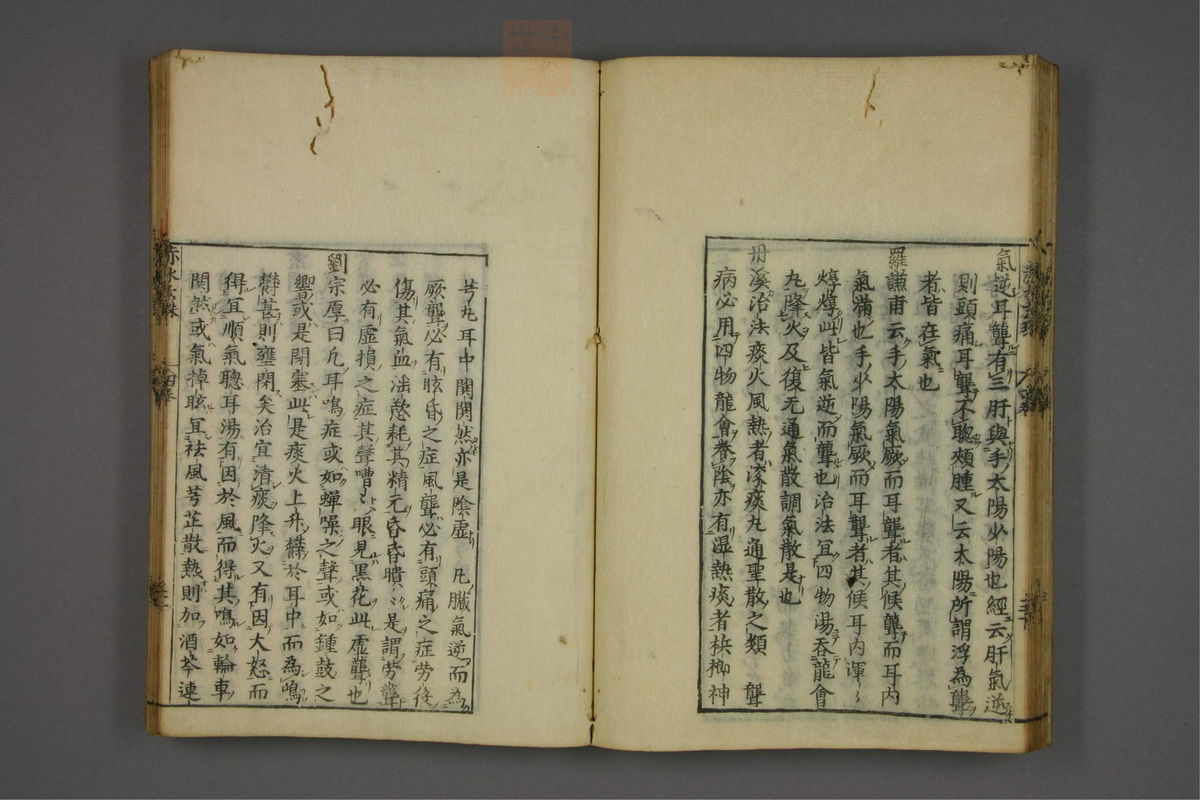 氣逆耳聾有三肝與手太陽少陽也經云肝氣逆
則頭痛耳聾不聰頰腫又云太陽所謂浮為聾
者皆在氣也
羅謙甫云手太陽氣厥而耳聾者其候聾而耳内
氣滿也手少陽氣厥而耳聾者其候耳内渾〻
焞焞此皆氣逆而聾也治法宜四物湯吞龍會
丸降火及復元通氣散調氣散是也
丹溪治法痰火風熱者滚痰丸通聖散之類 聾
病必用四物龍會養陰亦有湿熱痰者枳梹神
芎丸耳中閧閧然亦是陰虛 凡臟氣逆而為
厥聾必有眩昏之症風聾必有頭痛之症勞後
傷其氣血淫慾耗其精元昏昏聵〻是謂勞聾
必有虛損之症其聲嘈〻眼見黒花此虛聾也
劉宗厚曰凢耳鳴症或如蟬噪之聲或如鍾鼓之
響或是閉塞此是痰火上升欝於耳中而為鳴
欝甚則壅閉矣治宜清痰降火又有因大怒而
得宜順氣聰耳湯有因於風而得其鳴如輪車
閧然或氣掉眩宜祛風芎芷散熱則加酒芩連
赤水玄珠